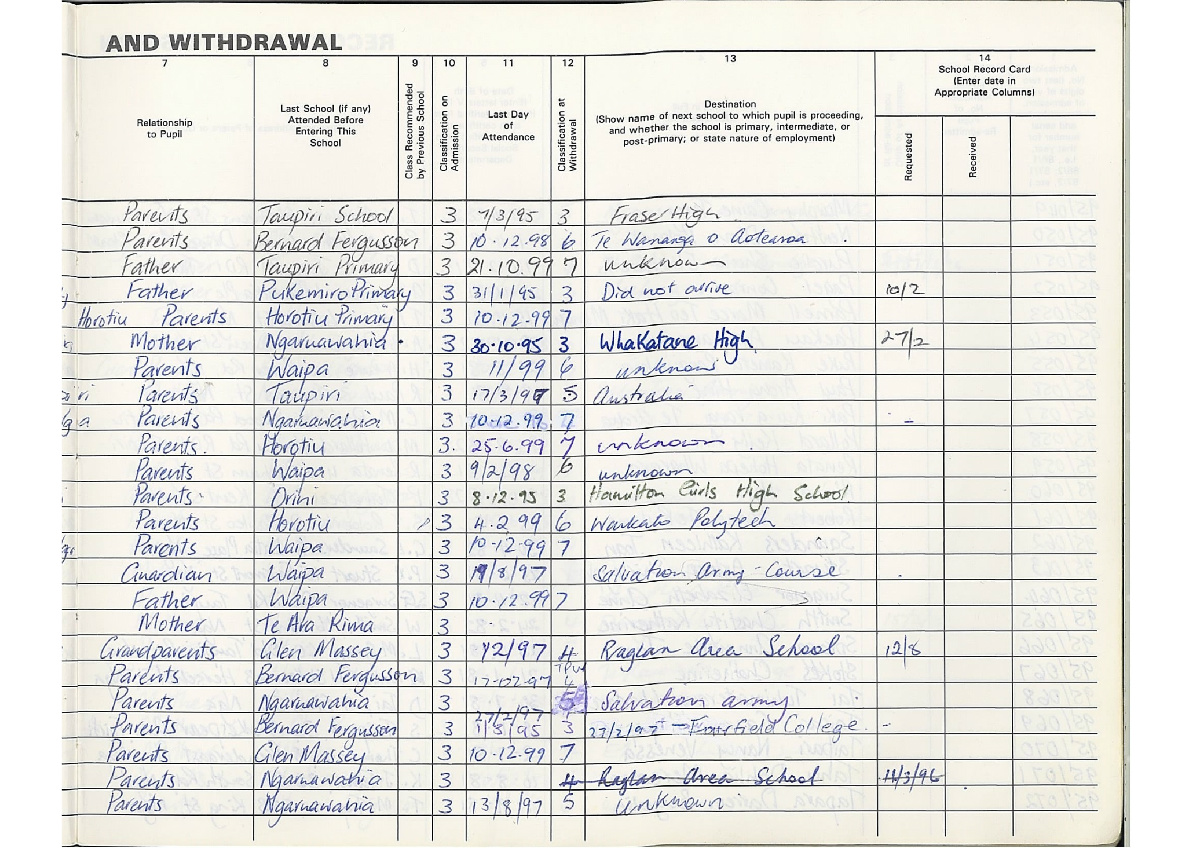 AND WITHDRAWAL
7 8 9 10 11 12 13 14
Relationship to Pupil
Last School (if any) Attended Before Entering This School
Class Recommended by Previous School
Classification on Admission
Last Day of Attendance
Classification at Withdrawal
Destination
(Show name of next school to which pupil is proceeding, and whether the school is primary, intermediate, or post-primary; or state nature of employment)
School Record Card
(Enter date in Appropriate Columns)
Requested
Received
Parents Taupiri School 3 7/3/95 3 Fraser High
Parents Bernard Fergusson 3 10.12.98 6 Te Wananga o Aotearoa
Father Taupiri Primary 3 21.10.99 7 unknown
Father Pukemiro Primary 3 31/1/95 3 Did not arrive 10/2
Horotiu Parents Horotiu Primary 3 10.12.99 7
Mother Ngaruawahia 3 30.10.95 3 Whakatane High 27/2
Parents Waipa 3 11/99 6 unknown
Parents Taupiri 3 17/3/97 5 Australia
Parents Ngaruawahia 3 10.12.99 7 -
Parents. Horotiu 3. 25.6.99 7 unknown
Parents Waipa 3 9/2/98 6 unknown
Parents Orini 3 8.12.95 3 Hamilton Girls High School
Parents Horotiu 3 4.2.99 6 Waukato Polytech
Parents Waipa 3 10-12-99 7
Guardian Waipa 3 19/8/97 Salvation Army - Course
Father Waipa 3 10.12.99 7
Mother Te Ara Rima 3
Grandparents Glen Massey 3 12/97 4 Raglan Area School 12/8
Parents Bernard Fergusson 3 17-02-97 4
Parents Ngaruawahia 3 5 Salvation army
27/2/97
Parents Bernard Fergusson 3 1/3/95 3 27/2/97 - Fairfield College. -
Parents Glen Massey 3 10.12.99 7
Parents Ngaruawahia 3 4 Raglan Area School 11/3/96
Parents Ngaruawahia 3 13/8/97 5 unknown